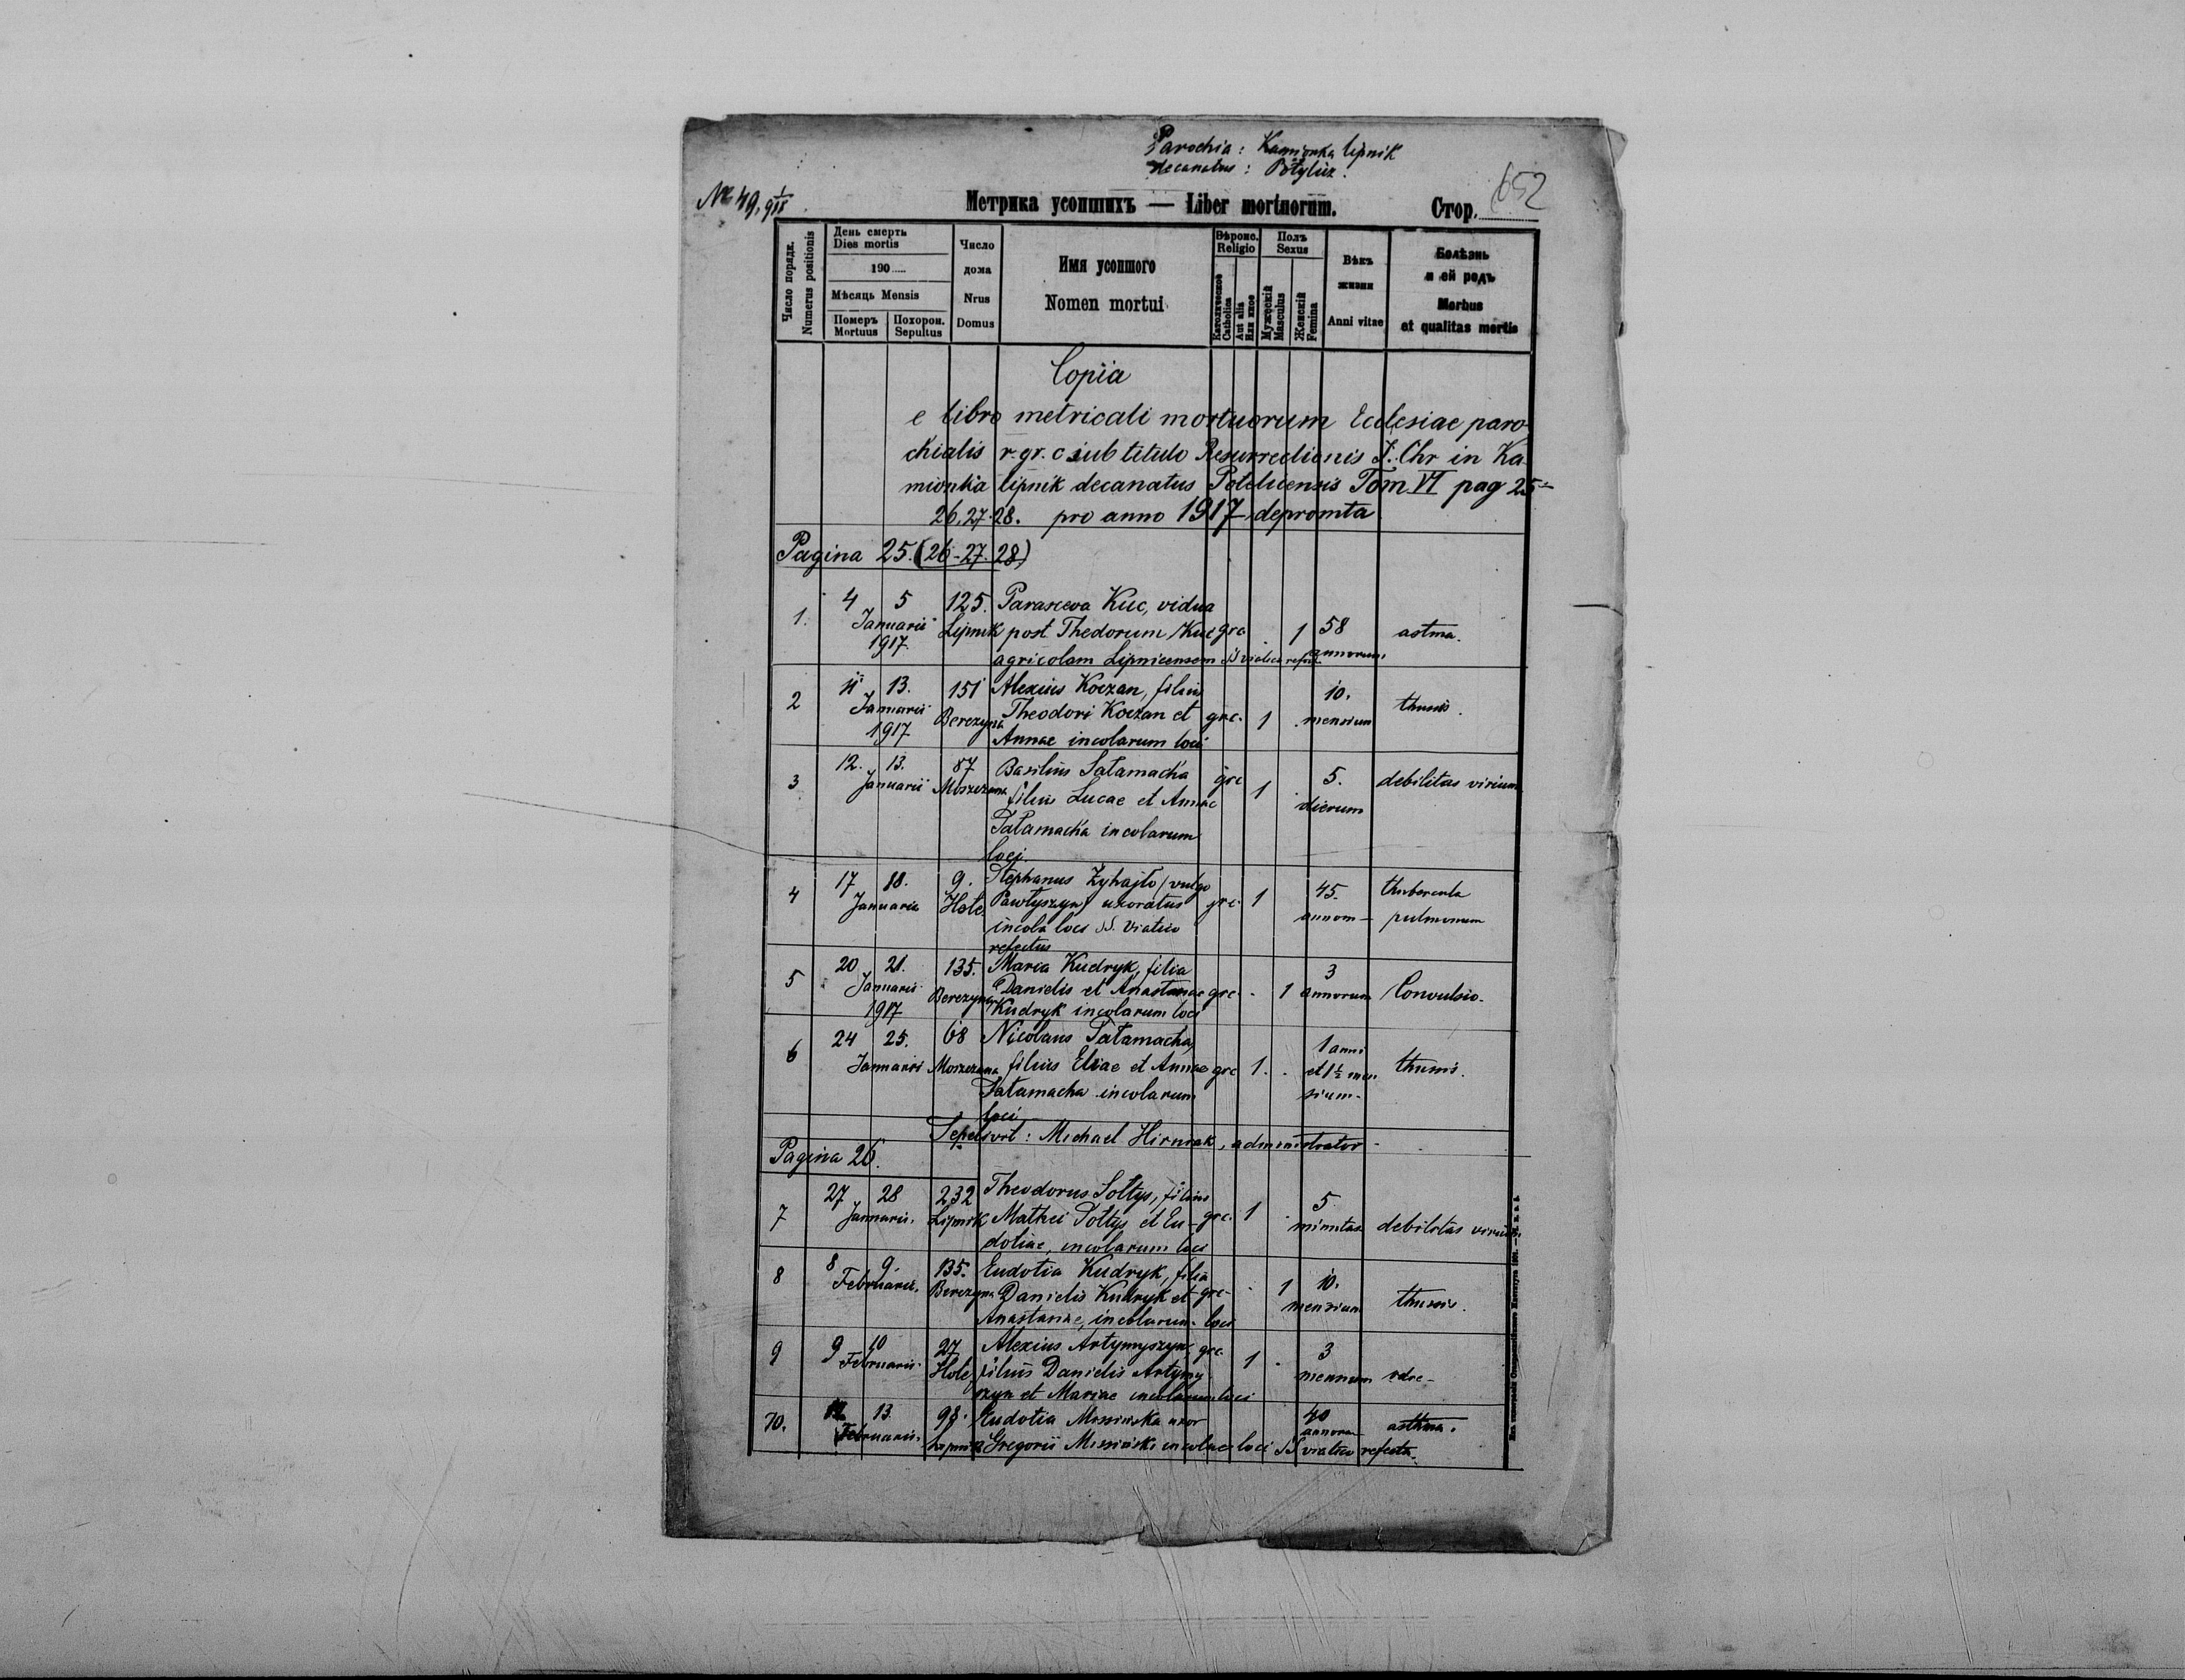 Parochia: Kamionka lipnik
decanatus: Potylicz.
№ 49, 9
Метрика усопшихъ — Liber mortuorum.
Стор. 652
Число порядк.
Numerus positionis
День смерть
Dies mortis
190.....
Мѣсяць Mensis
Померъ
Mortuus
Похорон.
Sepultus
Число
дома
Nrus
Domus
Имя усопшого
Nomen mortui
Вѣроис.
Religio
Католическое
Catholica
Aut alia
Или иное
Полъ
Sexus
Мужескій
Masculus
Женскій
Femina
Вѣкъ
жизни
Anni vitae
Болѣзнь
и ей родъ
Morbus
et qualitas mortis
Copia
e libro metricali mortuorum Ecclesiae paro-
chialis r. gr. c sub titulo Resurrectionis J. Chr in Ka
mionka lipnik decanatus Potelicensis Tom VI pag 25-
26.27.28. pro anno 1917 depromta
Pagina 25. (26-27.28)
1. 4 5 125. Parasceva Kuc, vidua
Januarii Lipnik post Thedorum Kuc grc 1 58 astma.
1917. agricolam Lipnicensem SS viatico refect. annorum
2 11 13. 151 Alexius Koczan, filius 10.
Januarii Berezyna Theodori Koczan et grc. 1 mensium thussis.
1917 Annae incolarum loci
3 12. 13. 87 Basilius Tatamacha grc 1 5. debilitas virium
Januarii Moszczana filius Lucae et Annae dierum
Tatamacha incolarum
loci.
4 17 18. 9. Stephanus Zyhajło (vulgo 45. thubercula
Januarii Hole Pawłyszyn) uxoratus grc. 1 annorum pulmonum
incola loci SS. Viatico
refectus
5 20 21. 135. Maria Kudryk, filia 3
Januarii Berezyna Danielis et Anastasiae grc. 1 annorum Convulsio.
1917 Kudryk incolarum loci
6 24 25. 68 Nicolaus Tatamacha, 1 anni
Januarii Moszczana filius Eliae et Annae grc 1. et 1½ men thussis.
Tatamacha incolarum sium.
loci
Sepelivit: Michael Hirniak, administrator
Pagina 26.
7 27 28 232 Theodorus Sołtys, filius 5
Januarii. Lipnik Mathei Sołtys et Eu- grc. 1 minutas debilitas virium
dotiae, incolarum loci
8 8 9. 135. Eudotia Kudryk, filia 1 10.
Februarii. Berezyna Danielis Kudryk et grc. mensium thussis.
Anastasiae, incolarum loci
9 9 10 27 Alexius Artymyszyn, grc. 1 3
Februarii. Hole, filius Danielis Artymy mensium
szyn et Mariae incolarum loci
10. 12 13. 98. Eudotia uxor 40 asthma.
Februarii. Lipnik Gregorii incolae loci SS viatico refecta. annorum